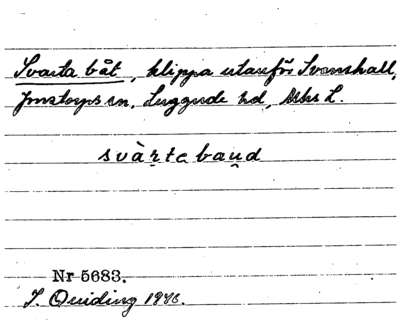 Svarta båt, klippa utanför Svanshall,
Jonstorps sn, Luggude hd, Mhs L.
svàrta baud
Nr 5683.
I. Quiding 1946.